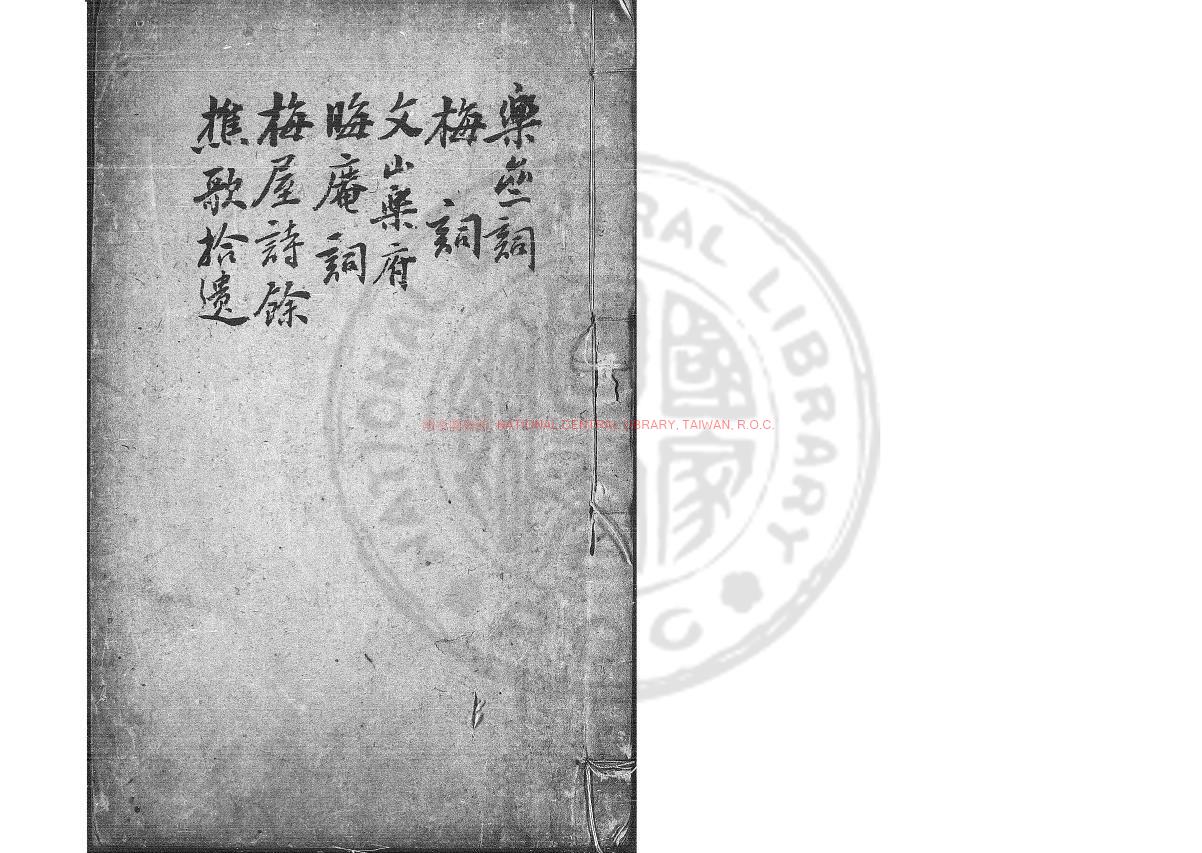 樂齋詞
梅 詞
文山樂府
晦庵詞
梅屋詩餘
樵歌拾遺
國家圖書館, NATIONAL CENTRAL LIBRARY, TAIWAN, R.O.C.